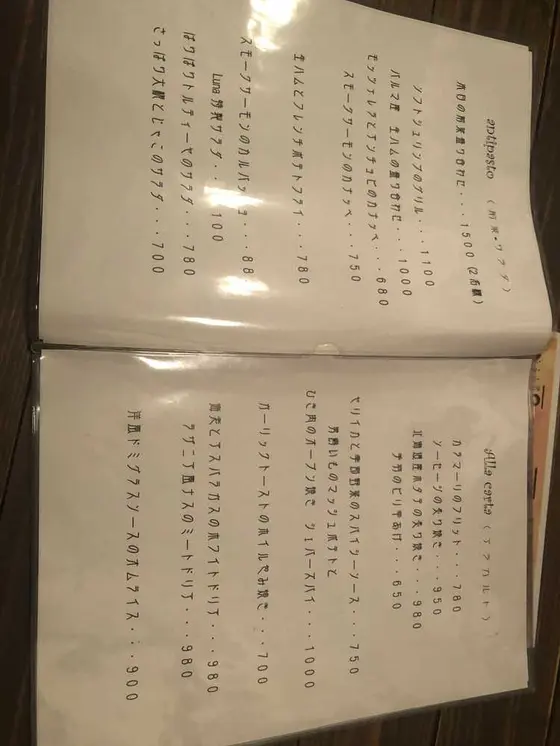 antipasto (前菜・サラダ)
本日の前菜盛り合わせ・・・1500(2名様)
ソフトシュリンプのグリル・・・1100
パルマ産 生ハムの盛り合わせ・・・1000
モッツァレラとアンチョビのカナッペ・・・680
スモークサーモンのカナッペ・・・750
生ハムとフレンチポテトフライ・・・780
スモークサーモンのカルパッチョ・・・88
Luna 特製サラダ・・・1100
ぱりぱりトルティーヤのサラダ・・・780
さっぱり大根とじゃこのサラダ・・・700
Alla carta (アラカルト)
カラマーリのフリット・・・780
ソーセージの炙り焼き・・・950
北海道産ホタテの炙り焼き・・・980
子羽のピリ辛あげ・・・650
ヤリイカと季節野菜のスパイシーソース・・・750
男爵いものマッシュポテトと
ひき肉のオーブン焼き シェパーズパイ・・・1000
ガーリックトーストのホイル包み焼き・・・700
とアスパラガスのホワイトドリア・・・980
ラザニア風ナスのミートドリア・・・980
洋風ドミグラスソースのオムライス・・・900